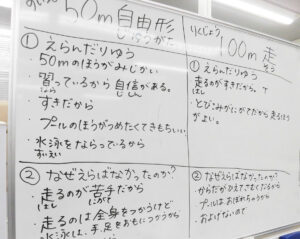 すいえい
50m自由形
じゆうがた
① えらんだりゆう
・50mのほうがみじかい
・習っているから自信がある。
なら じしん
・すきだから
・プールのほうがつめたくてきもちいい。
・水泳をならっているから
すいえい
② なぜえらばなかったのか?
・走るのが苦手だから
はし にがて
・走るのは全身をつかうけど
はし ぜんしん
水泳は、手足をおもにつかうから
りくじょう
100m走
そう
① えらんだりゆう
・走るのがすきだから。
はし
・とびこみがにがてだから走るほうがよい。
② なぜえらばなかったのか?
・からだがひえてさむくなるから
・プールはおぼれちゃうから
・およげないので